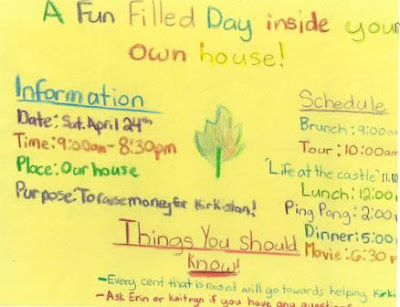 A Fun Filled Day inside your
own house!
Information
Date: Sat. April 24th
Time: 9:00am - 8:30pm
Place: Our house
Purpose: To raise money for
Schedule
Brunch: 9:00a
Tour: 10:00am
"Life at the castle" 11:
Lunch: 12:00
Ping Pong: 2:00
Dinner: 5:00
Movie: 6:30 P
Things You should
Know!
- Every cent that is raised will go towards helping
- Ask Erin or Kaitryn if you have any questions